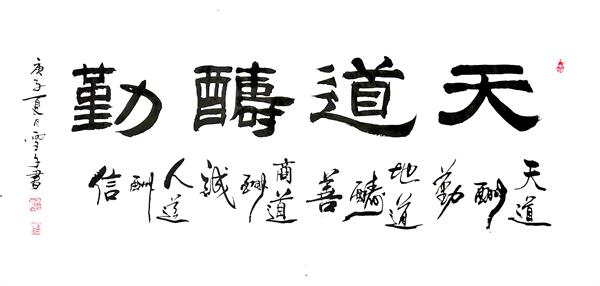 天道醻勤
天道酬勤 地道醻善 商道酬誠 人道酬信
庚子夏月雪書